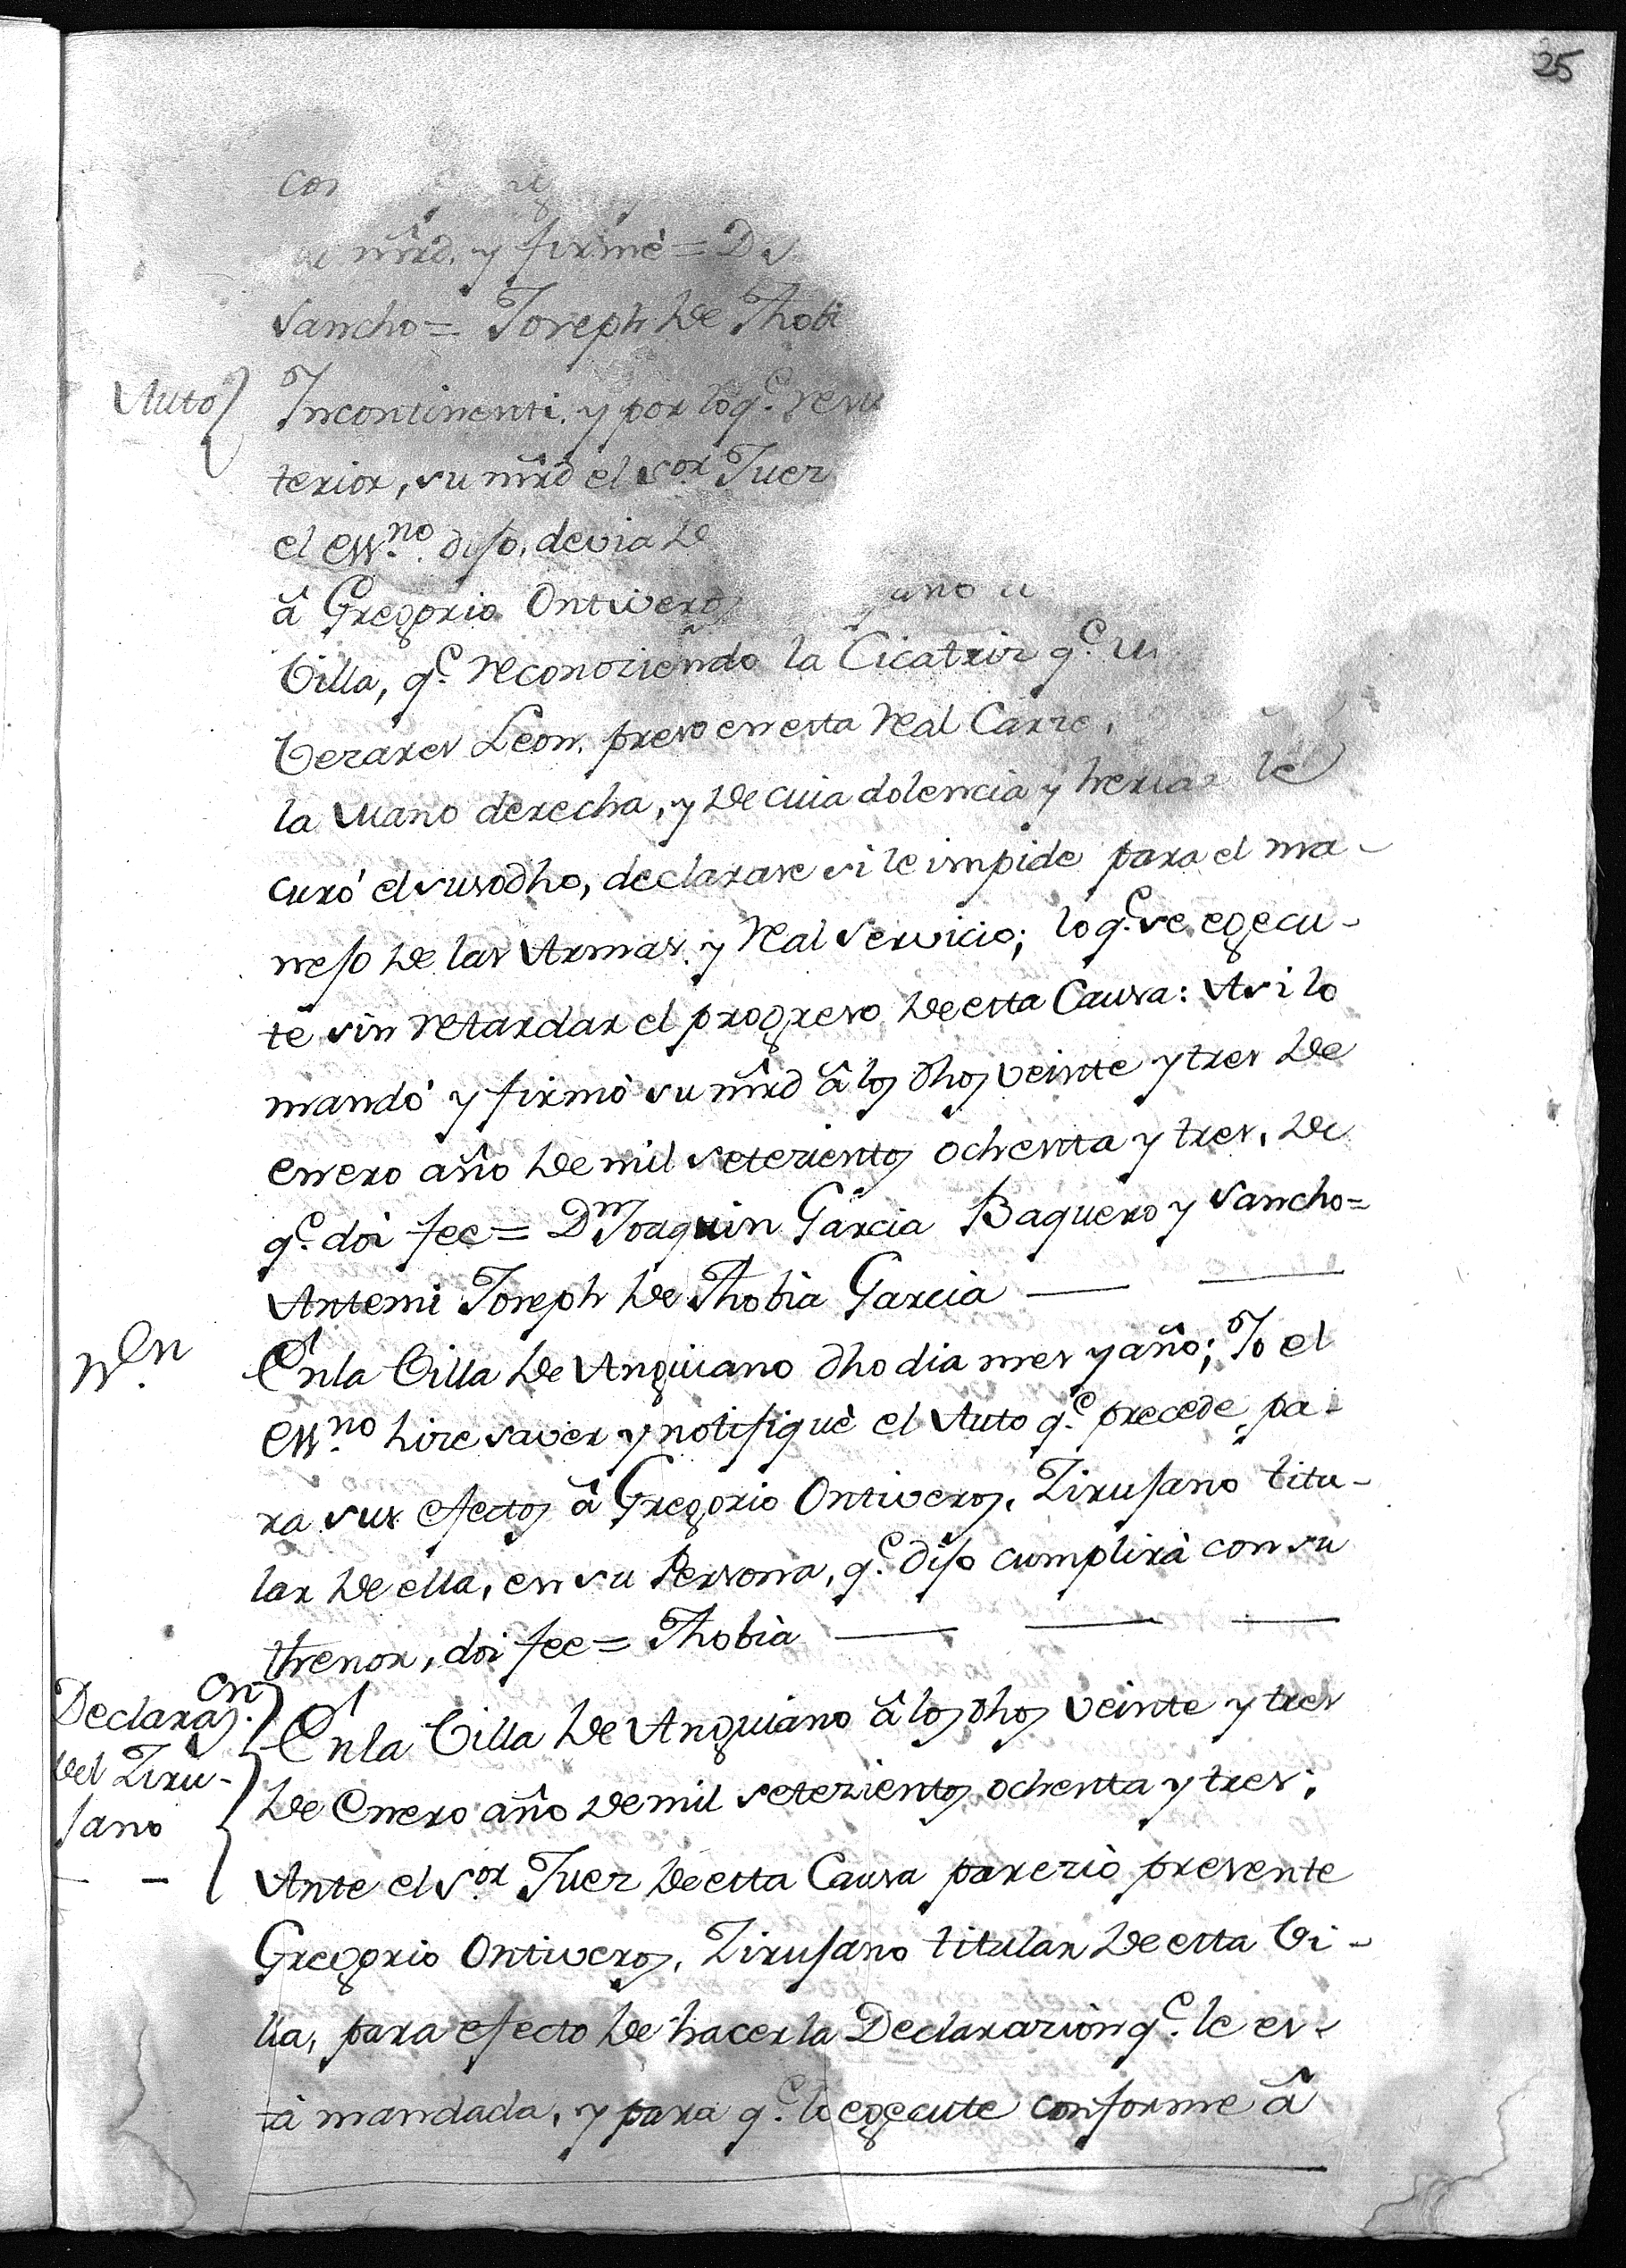 25
con
mrd. y firmè = D
Sancho = Joseph de Thobi
Auto
Incontinenti. y por lo q.e resu
terior, su mrd el Sor. Juez
el essno. dijo, devia de
â Gregorio Ontiveros ano
Villa, q.e reconoziendo la Cicatriz q.e
Verares Leon, preso en esta Real Carze
la Mano derecha, y de cuia dolencia y heridas le
curó el susodho, declarase si le impide para el ma-
nejo de las Armas. y Real Servicio; lo q.e se egecu-
te sin retardar el progreso de esta Causa: Asi lo
mandó y firmò su mrd â los dhos veinte y tres de
enero año de mil setezientos ochenta y tres. de
q.e doi fee = Dn Joaquin Garcia Baquero y Sancho =
Antemi Joseph de Thobìa Garcia
Non.
En la Villa de Anguiano dho dia mes y año; Yo el
essno. hize saver y notifiquè el Auto q.e precede pa-
ra sus efectos â Gregorio Ontiveros, Zirujano titu-
lar de ella, en su Persona, q.e dijo cumplirà con su
thenor, doi fee = Thobìa
Declaraon.
del Ziru-
jano
En la Villa de Anguiano â los dhos veinte y tres
de Enero año de mil setezientos ochenta y tres;
Ante el Sor. Juez de esta Causa parezìo presente
Gregorio Ontiveros, Zirujano titular de esta Vi-
lla, para efecto de hacer la Declarazion q.e le es-
tà mandada, y para q.e lo egecute conforme â